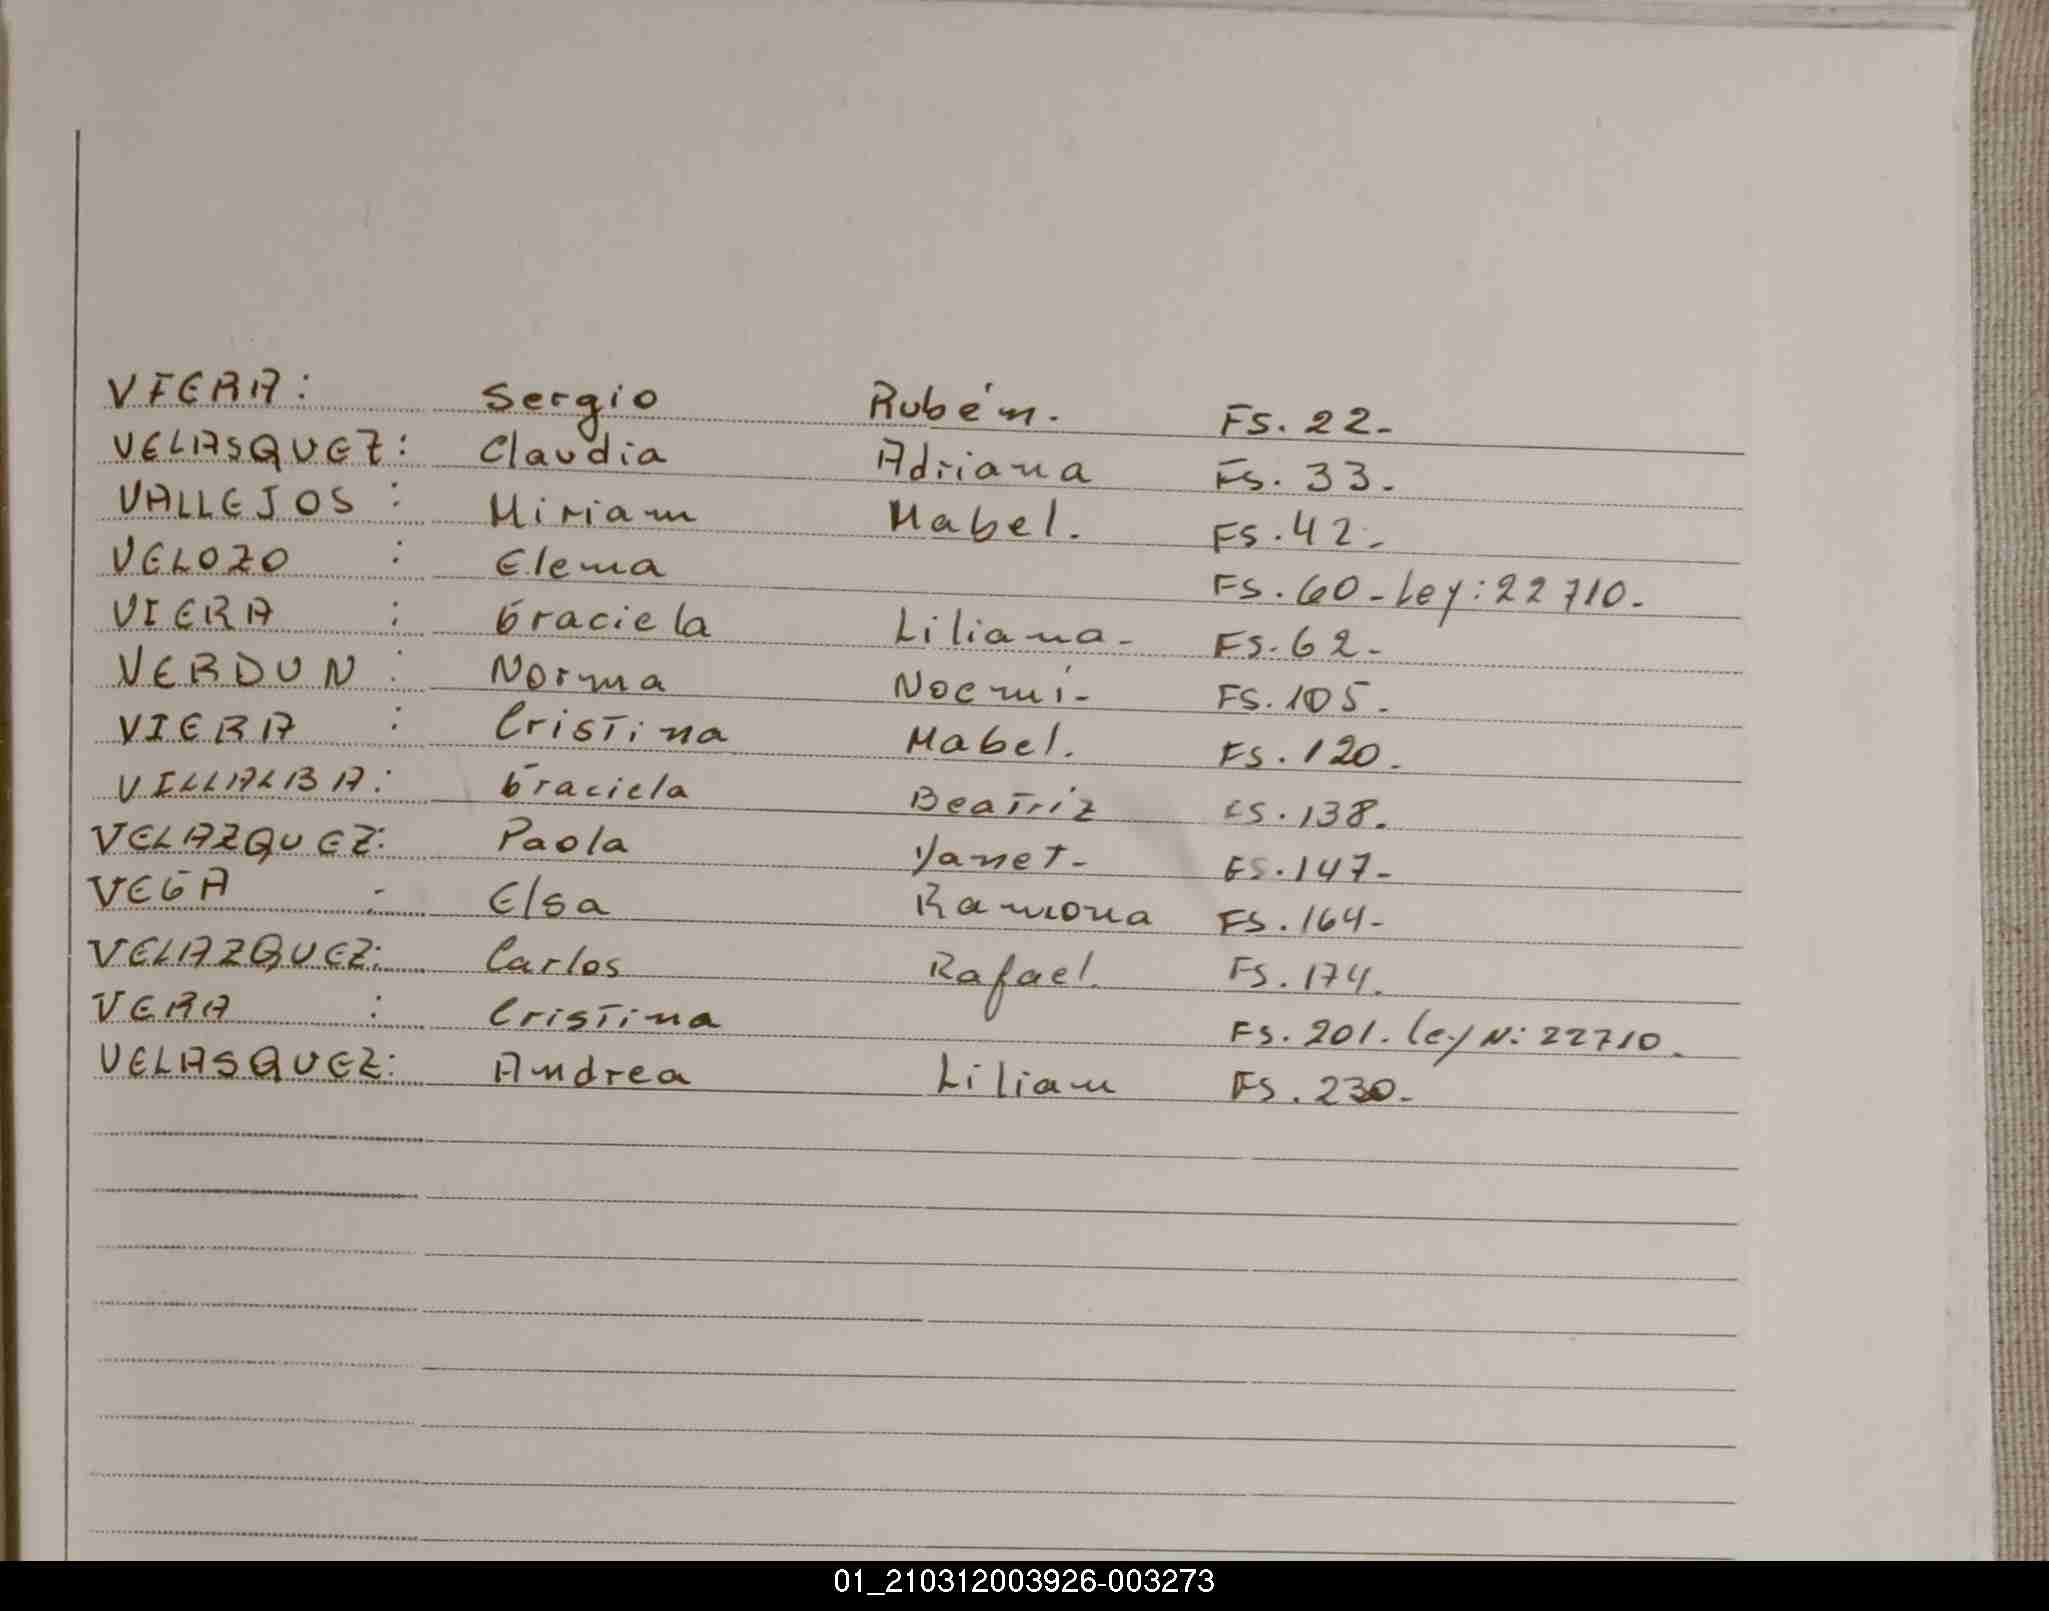 VIERA: Sergio Rubén. FS. 22-
VELASQUEZ: Claudia Adriana FS. 33.
VALLEJOS : Miriam Mabel. FS. 42.
VELOZO : Elena FS. 60-Ley: 22710-
VIERA : Graciela Liliana- FS. 62-
VERDUN : Norma Noemí- FS. 105-
VIERA : Cristina Mabel. FS. 120.
VILLALBA: Graciela Beatriz FS. 138.
VELAZQUEZ: Paola Yanet- FS. 147-
VEGA : Elsa Ramona FS. 164-
VELAZQUEZ: Carlos Rafael. FS. 174.
VERA : Cristina FS. 201. Ley N: 22710.
VELASQUEZ: Andrea Lilian FS. 230.
01_210312003926-003273